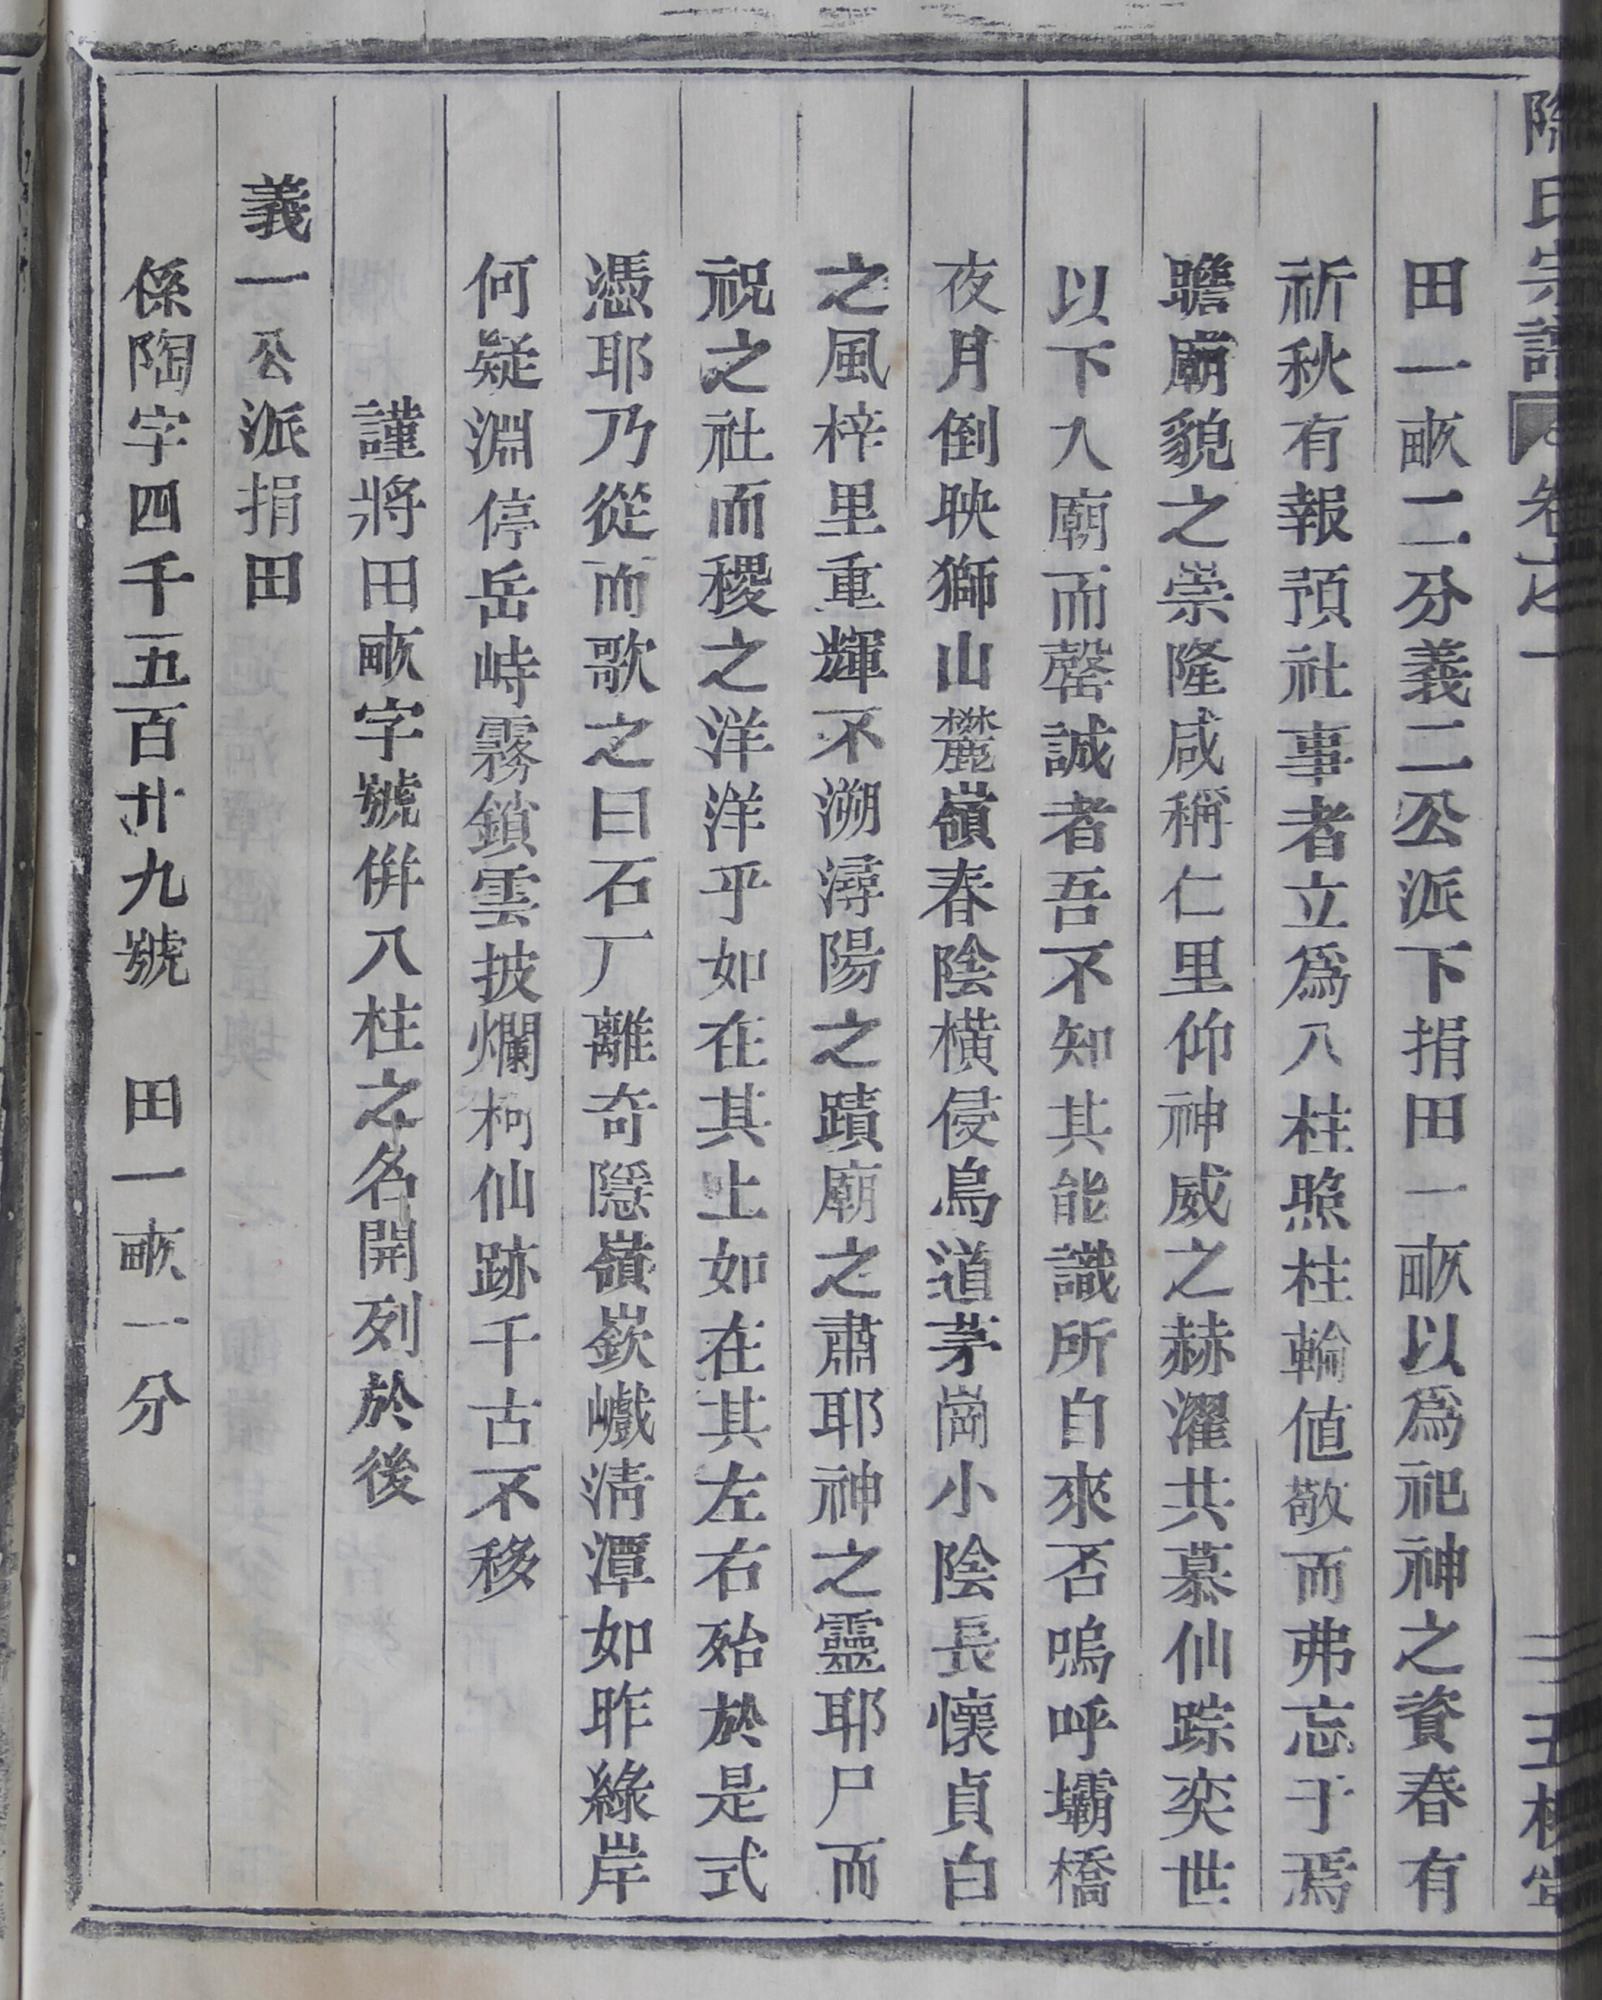 陰氏宗譜 卷之一 三 五桂堂
田一畝二分義二公派下捐田一畝以爲祀神之資春有
祈秋有報預社事者立爲八柱照柱輪値敬而弗忘于焉
瞻廟貌之崇隆咸稱仁里仰神威之赫濯共慕仙踪奕世
以下入廟而罄誠者吾不知其能識所自來否嗚呼壩橋
夜月倒映獅山麓嶺春陰橫侵鳥道茅崗小陰長懷貞白
之風梓里重輝不溯潯陽之蹟廟之肅耶神之靈耶尸而
祝之社而稷之洋洋乎如在其上如在其左右殆於是式
憑耶乃從而歌之曰石厂離奇隱嶺嶔巇淸潭如昨綠岸
何疑淵停岳峙霧鎖雲披爛柯仙跡千古不移
謹將田畝字號併八柱之名開列於後
義一公派捐田
係陶字四千五百廿九號 田一畝一分